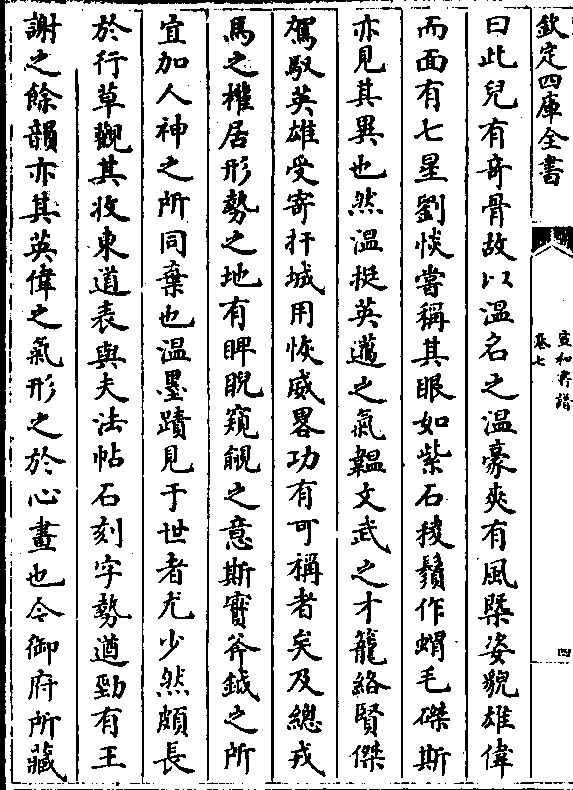 欽定四庫全書
宣和書譜
卷七
四
曰此兒有竒骨故以溫名之溫豪爽有風槩姿貌雄偉
而面有七星劉惔嘗稱其眼如紫石稜鬚作蝟毛磔斯
亦見其異也然溫挺英邁之氣韞文武之才籠絡賢傑
駕馭英雄受寄扞城用恢威畧功有可稱者矣及總戎
馬之權居形勢之地有睥睨窺覦之意斯寔斧鉞之所
宜加人神之所同棄也溫墨蹟見于世者尤少然頗長
於行草觀其收東道表與夫法帖石刻字勢遒勁有王
謝之餘韻亦其英偉之氣形之於心畫也今御府所藏